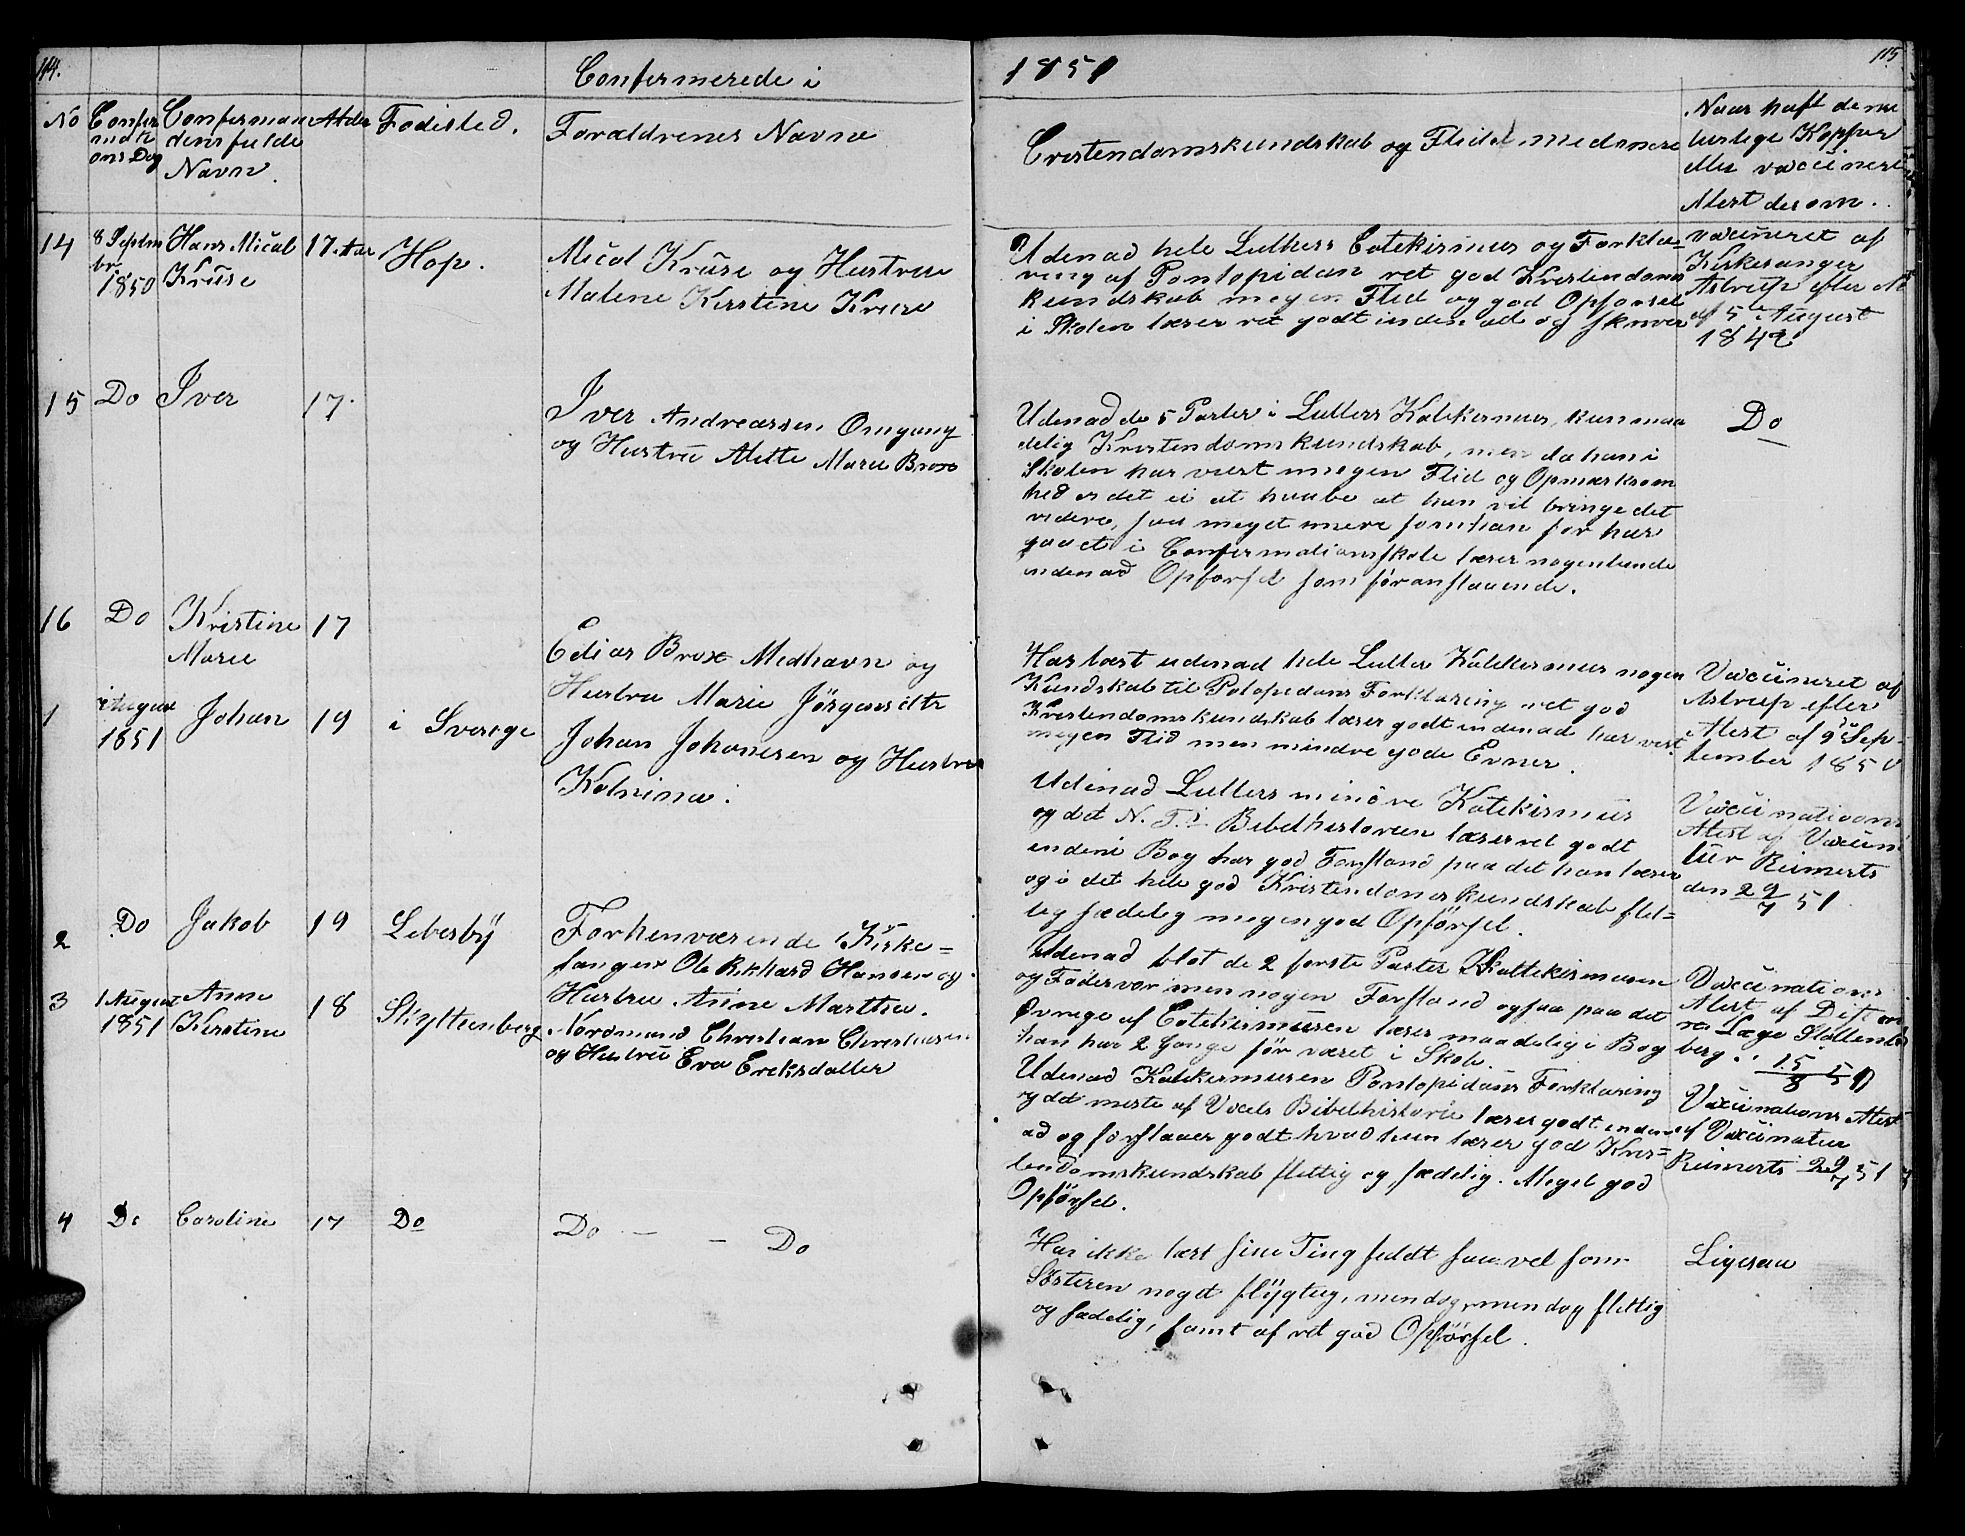 114.
Confermerede i
1851
115
No
Confir
mati
ons Dag
Conferman
dens fulde
Navn.
Alder
Fødested.
Foraldrenes Navne
Cristendomskundskab og Flid med mere
Naar haft de na
turlige Kopper
eller vaccineret
Atest derom.
14
8 Septem
br
1850
Hans Micael
Kruse
17. Aar
Hop.
Micael Kruse og Hustrue
Malene Kirstine Kruse
Udenad hele Luthers Catekismus og Forkla=
ring af Pontopidan ret god Kristendoms
kundskab megen Flid og god Opførsel
i Skolen læser ret godt inden ad og skriver
vaccineret af
Kirkesanger
Astrup efter At
af 5te August
1842
15
Do
Iver
17.
Iver Andreassen Omgang
og Hustru Alette Marie Brox
Udenad de 5 Parter i Luthers Katekismus, kun maa
delig Kristendomskundskab, men da han i
Skolen har viist megen Flid og Opmærksom
hed er det ei at haabe at han vil bringe det
videre, saa meget mere som han før har
gaaet i Confermationsskole læser nogenlunde
indenad Opførsel som føranstaaende.
Do
16
Do
Kristine
Marie
17
Edias Brox Medhavn og
Hustru Marie Jörgensdtr
Har lært udenad hele Luthers Katekismus nogen
Kundskab til Potopedans Forklaring ret god
Kristendomskundskab læser godt indenad har vist
megen Flid men mindre gode Evner.
Vaccineret af
Astrup efter
Atest af 9de Sep-
tember 1850
1
August
1851
Johan
19
i Sverige
Johan Johanesen og Hustrue
Katrina.
Udenad Luthers mindre Katekismus
og det N. T. i Bibelhistorien læser ret godt
inden i Bog har god Forstand paa det han læser
og i det hele god Kristendoms kundskab flit=
lig sædelig megen god Opførsel.
Vaccinations
Atest af Vaccina
tür Reimerts
den 29/7 51
2
Do
Jakob
19
Lebesbÿ
Forhenværende Kirke=
sanger Ole Rikhard Hansen og
Hustru Anne Marthea.
Udenad blot de 2 første Parter i Kattekismusen
og Fadervor men nogen Forstand ogsaa paa det
Øvrige af Catekismusen læser maadelig i Bog
han har 2 Gange før været i Skole.
Vaccinations
Atest af Distri
ns Læge Stoltenb
berg. 15/8 51
3
1 August
1851
Anne
Kirstine
18
Skyttenberg
Nordmand Christian Christiansen
og Hustru Eva Ereksdatter
Udenad Katekismusen Pontopidans Forklaring
og det meste af Vocels Bibelhistorie læser godt inden=
ad og forstaaer godt hvad hun læser god Kris=
tendomskundskab flittig og sædelig. Meget god
Opførsel.
Vaccinations Atest
af Vaccinatur
Reimerts 29/7 51
4
Do
Caroline
17
Do
Do — – Do
Har ikke lært sine Ting feldt saavel som
Søsteren noget flÿgtig, mendog, mendog flittig
og sædelig, samt af ret god Opførsel.
Ligesaa